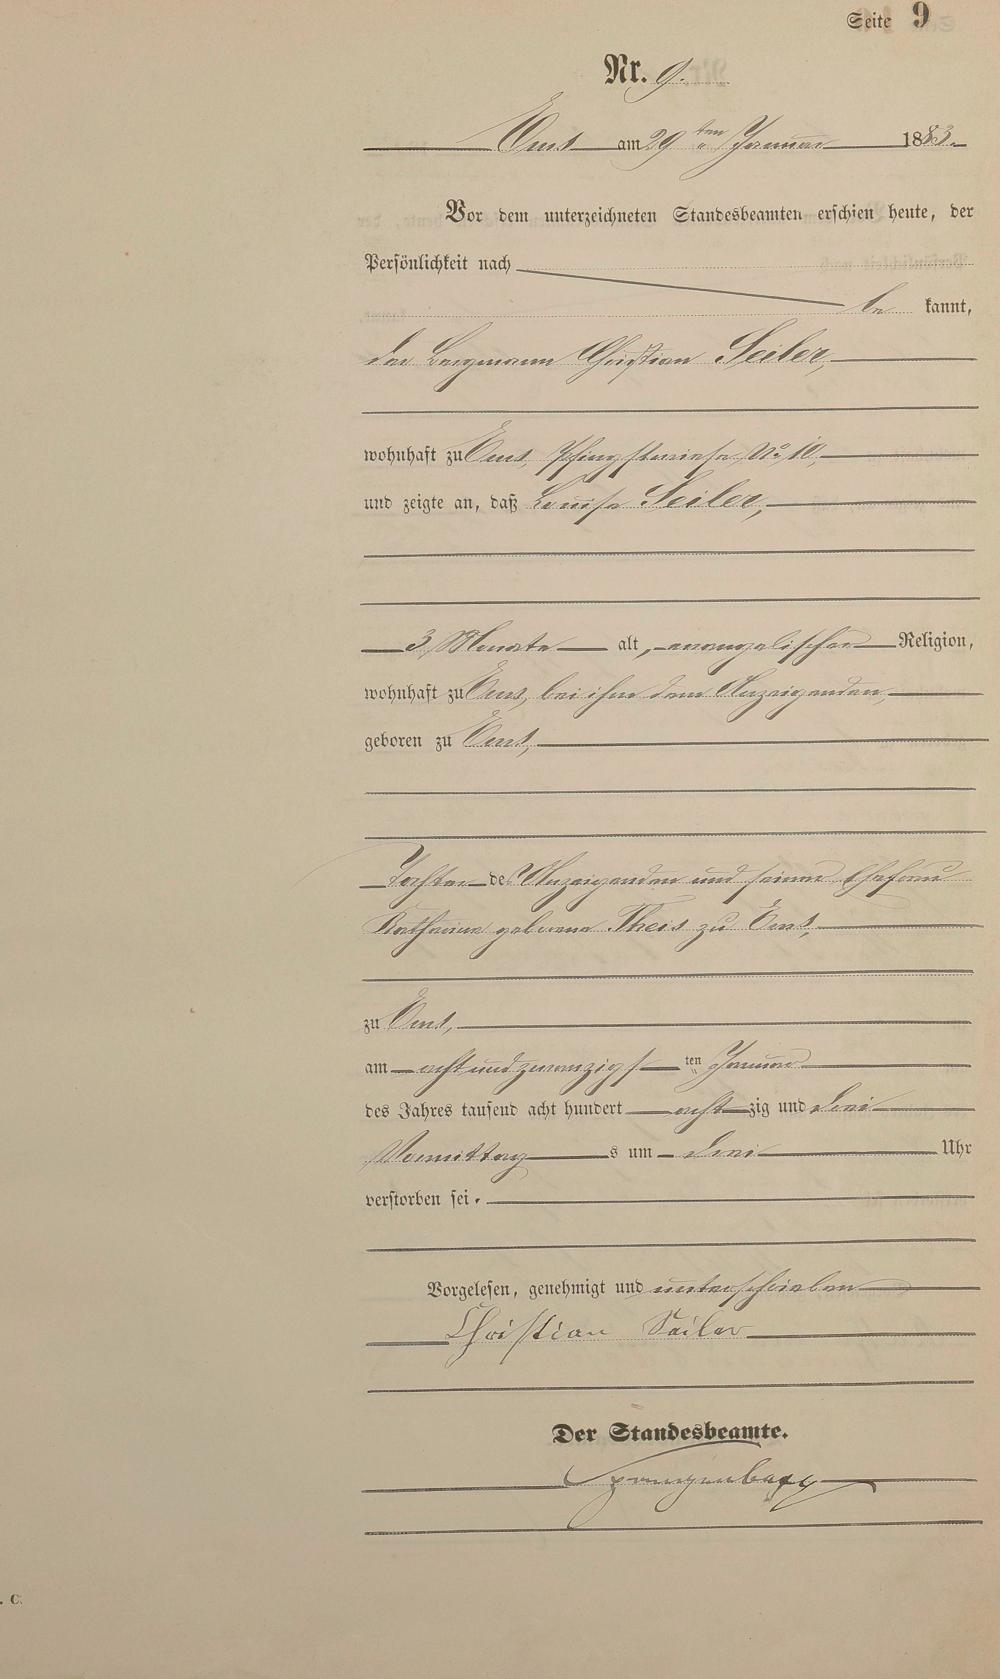 Seite 9
Nr. 9.
Ems am 29ten Januar 1883.
Vor dem unterzeichneten Standesbeamten erschien heute, der
Persönlichkeit nach
be kannt,
der Bergmann Christian Seiler,
wohnhaft zu Ems, Pfingstwiese No 10,
und zeigte an, daß Louise Seiler,
3 Monate alt, evangelischer Religion,
wohnhaft zu Ems, bei ihm dem Anzeigenden,
geboren zu Ems,
Tochter des Anzeigenden und seiner Ehefrau
Katharine geborene Theis zu Ems,
zu Ems,
am acht und zwanzigsten Januar
des Jahres tausend acht hundert acht zig und drei
Vormittags um drei Uhr
verstorben sei.
Vorgelesen, genehmigt und unterschrieben
Christian Seiler
Der Standesbeamte.
Spangenberg
. C.